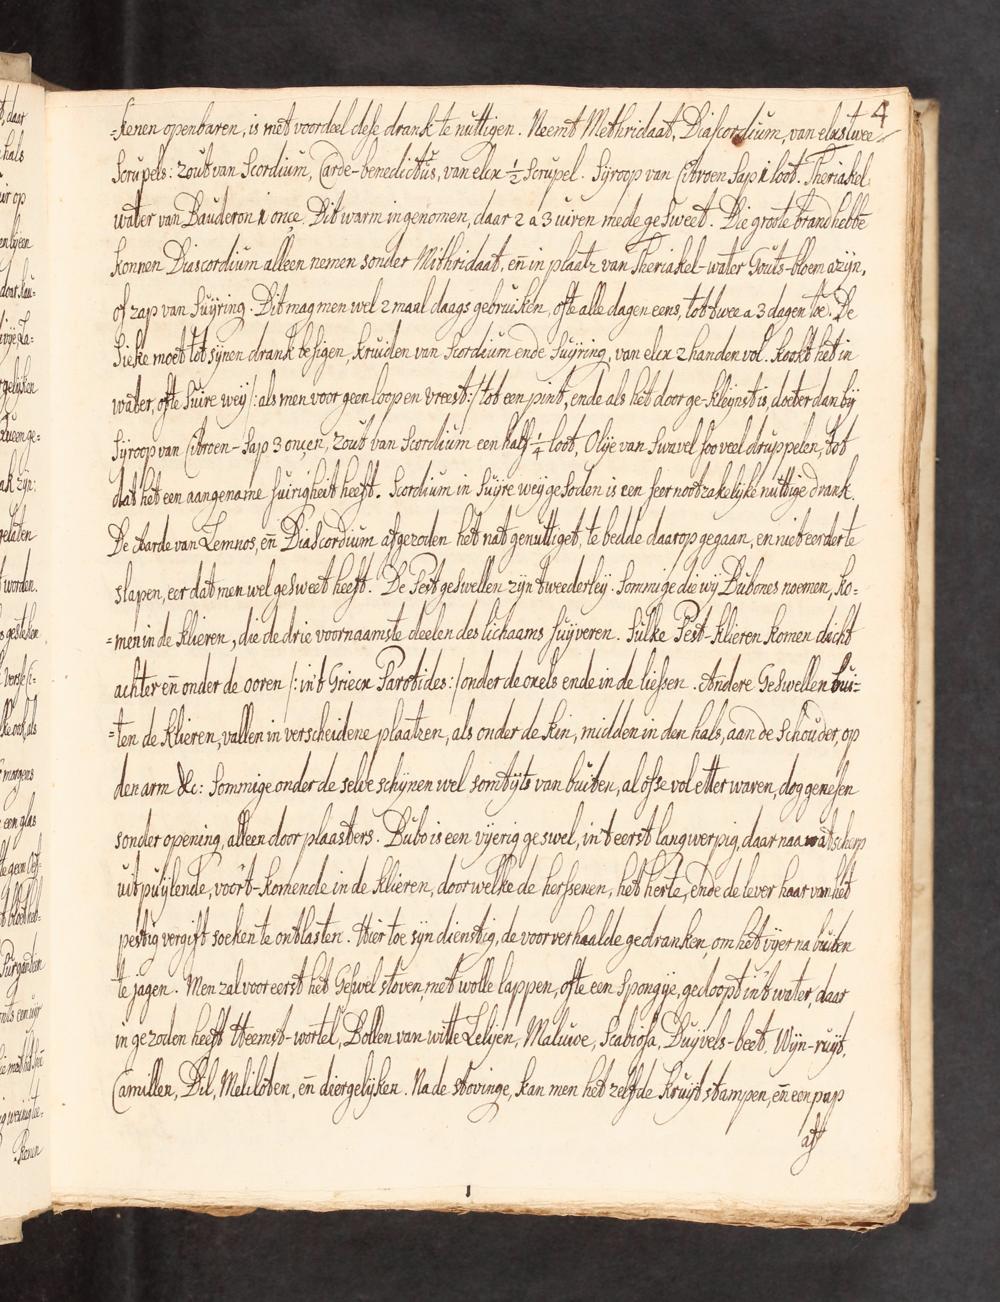 4
=kenen openbaren, is met voordeel dese drank te nuttigen. Neemt Methridaat, Diascordium, van elx twee
Scrupels: zout van Scordium, Carde-benedictus, van elcx ½ Scrupel. Sijroop van Citroen Sap 1 loot. Theriakel
water van Bauderon 1 once. Dit warm ingenomen, daar 2 a 3 uiren mede gesweet. Die groote brand hebbē
konnen Diascordium alleen nemen sonder Mithridaat, eñ in plaatz van Theriakel-water Gouts-bloem azijn,
of zap van Suijring. Dit mag men wel 2 maal daags gebruiken, ofte alle dagen eens, tot twee a 3 dagen toe. De
Sieke moet tot sijnen drank besigen, kruiden van Scordium ende Suijring, van elcx 2 handen vol. Kookt het in
water, ofte Suire weij /: als men voor geen loop en vreest:/ tot een pint, ende als het doorge-kleijnst is, doeter dan bij
Sijroop van Citroen-Sap 3 onçen, zout van Scordium een half ¼ loot, Olije van Swavel soo veel druppelen, tot
dat het een aangename suirigheit heeft. Scordium in Suijre weij gesoden is een seer nootzakelijke nuttige drank.
De Aarde van Lemnos, eñ Diascordium afgezoden het nat genuttiget, te bedde daarop gegaan, en niet eerder te
slapen, eer dat men wel gesweet heeft. De Pest geswellen zijn tweederleij. Sommige die wij Bubones noemen, ko=
=men in de klieren, die de drie voornaamste deelen des lichaams suijveren. Sulke Pest-klieren komen dicht
achter eñ onder de ooren /: in't Griecx Parotides:/ onder de oxels ende in de liessen. Andere Geswellen bui=
=ten de klieren, vallen in verscheidene plaatzen, als onder de kin, midden in den hals, aan de Schouder, op
den arm &c: Sommige onder de selve schijnen wel somtijts van buiten, al ofse vol etter waren, dog genesen
sonder opening, alleen door plaasters. Bubo is een vijerig geswel, in't eerst langwerpig, daar naa wat scherp
uitpuijlende, voort-komende in de klieren, door welke de herssenen, het herte, ende de lever haar van het
pestig vergift soeken te ontlasten. Hier toe sijn dienstig, de voorverhaalde gedranken, om het vijer na buiten
te jagen. Men zal voor eerst het Geswel stoven, met wolle lappen, ofte een spongije, gedoopt in't water, daar
in gezoden heeft Heemst-wortel, Bollen van witte Lelijen, Maluwe, Scabiosa, Duijvels-beet, Wijn-ruijt,
Camillen, Dil, Meliloten, eñ diergelijken. Na de stovinge, kan men het zelfde kruijt stampen, eñ een pap
af